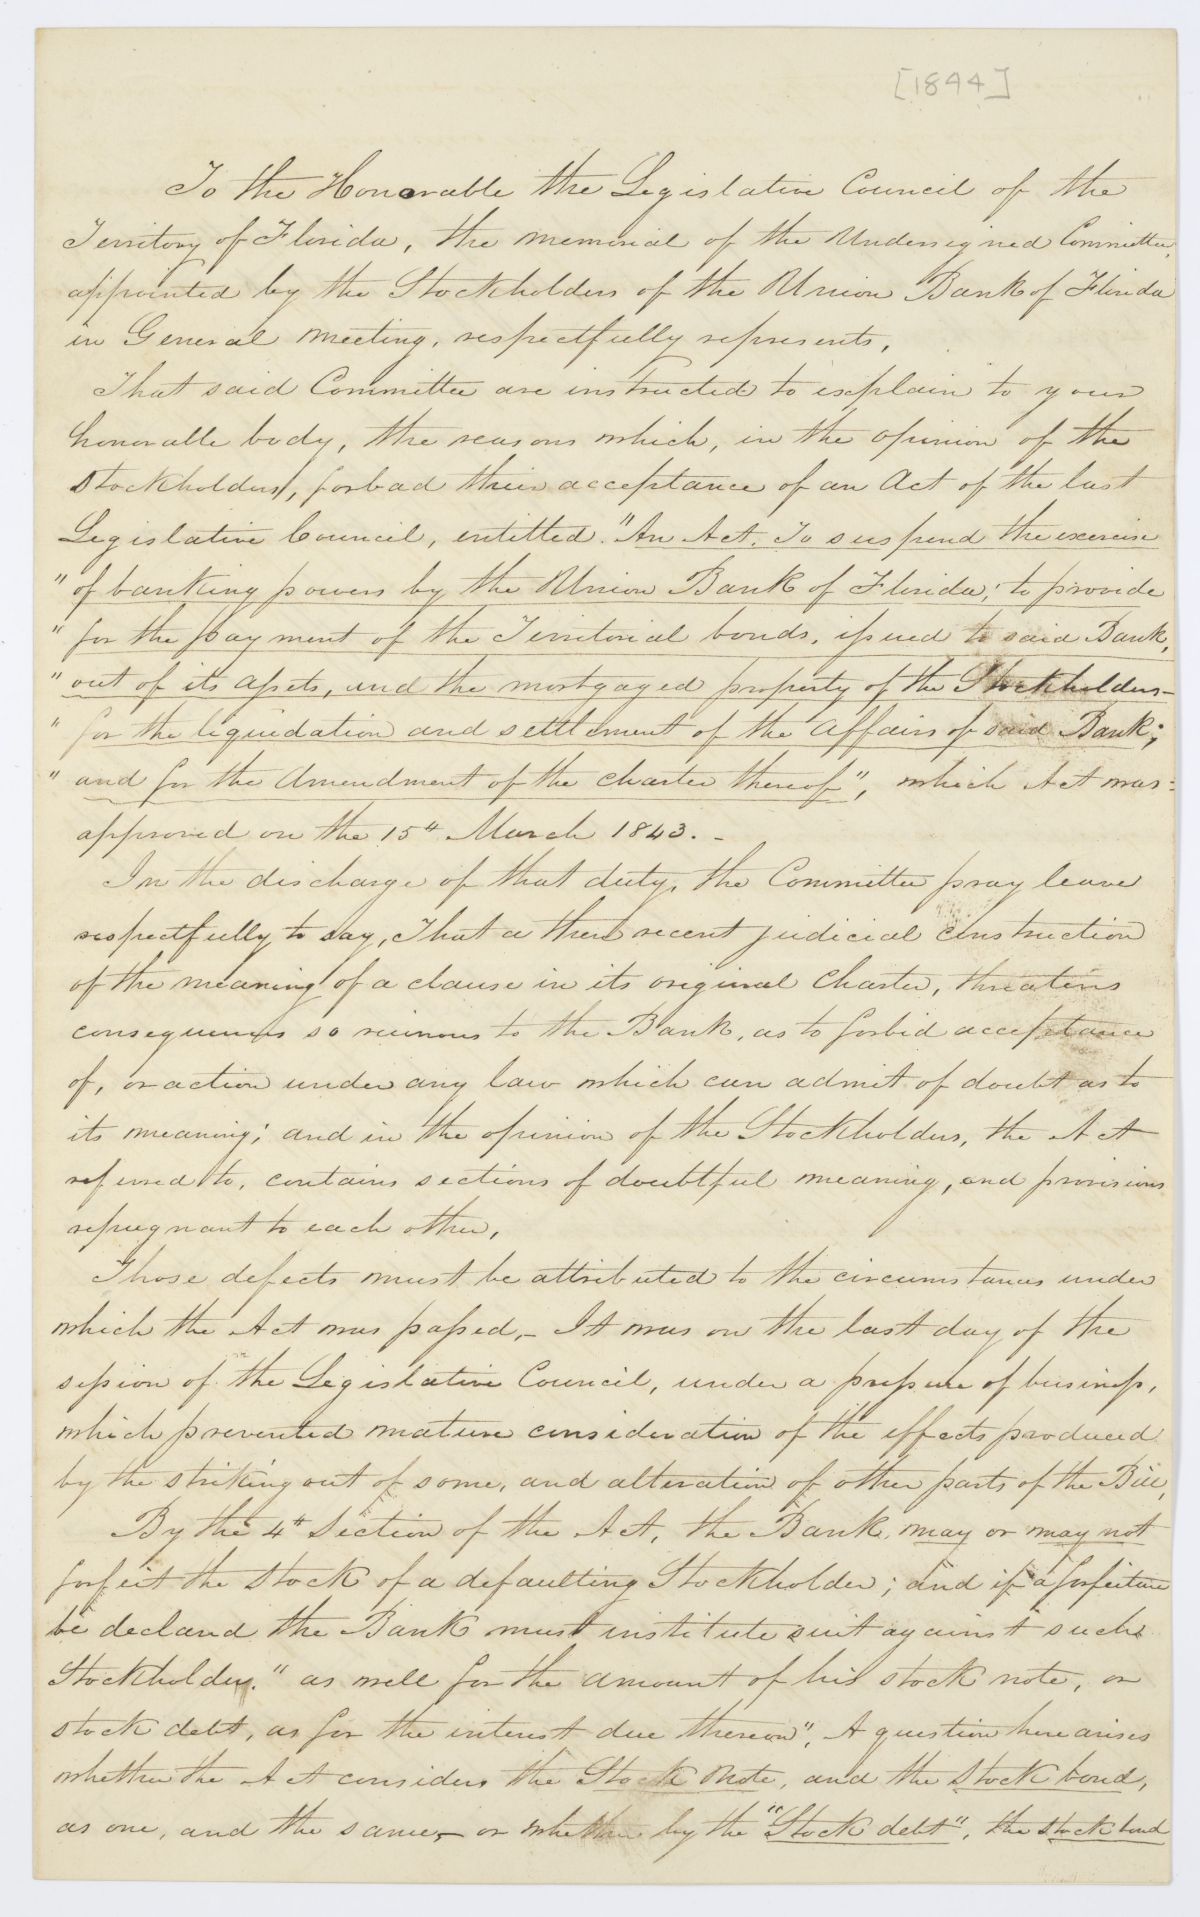 [1844]
To the Honorable the Legislative Council of the
Territory of Florida, the memorial of the Undersigned Committee,
appointed by the Stockholders of the Union Bank of Florida
in General meeting, respectfully represents,
That said Committee are instructed to explain to your
honorable body, the reasons which, in the opinion of the
Stockholders, forbad their acceptance of an Act of the last
Legislative Council, entitled. "An Act. To suspend the exercise
" of banking powers by the Union Bank of Florida; to provide
" for the payment of the Territorial bonds, issued to said Bank,
" out of its assets, and the mortgaged property of the Stockholders-
" for the liquidation and settlement of the affairs of said Bank;
" and for the Amendment of the Charter thereof", which Act was
approved on the 15th March 1843. -
In the discharge of that duty, the Committee pray leave
respectfully to say, That a then recent judicial construction
of the meaning of a clause in its original Charter, threatens
consequences so ruinous to the Bank, as to forbid acceptance
of, or action under any law which can admit of doubt as to
its meaning; and in the opinion of the Stockholders, the Act
referred to, contains sections of doubtful meaning, and provisions
repugnant to each other,
Those defects must be attributed to the circumstances under
which the Act was passed,- It was on the last day of the
session of the Legislative Council, under a pressure of business,
which prevented mature consideration of the effects produced
by the striking out of some, and alteration of other parts of the Bill,
By the 4th Section of the Act, the Bank, may or may not
forfeit the Stock of a defaulting Stockholder; and if a forfeiture
be declared the Bank must institute suit against such
Stockholder, "as well for the amount of his stock note, or
stock debt, as for the interest due thereon", A question here arises
whether the Act considers the Stock Note, and the Stock bond,
as one, and the same,- or whether by the "Stock debt", the stock bond